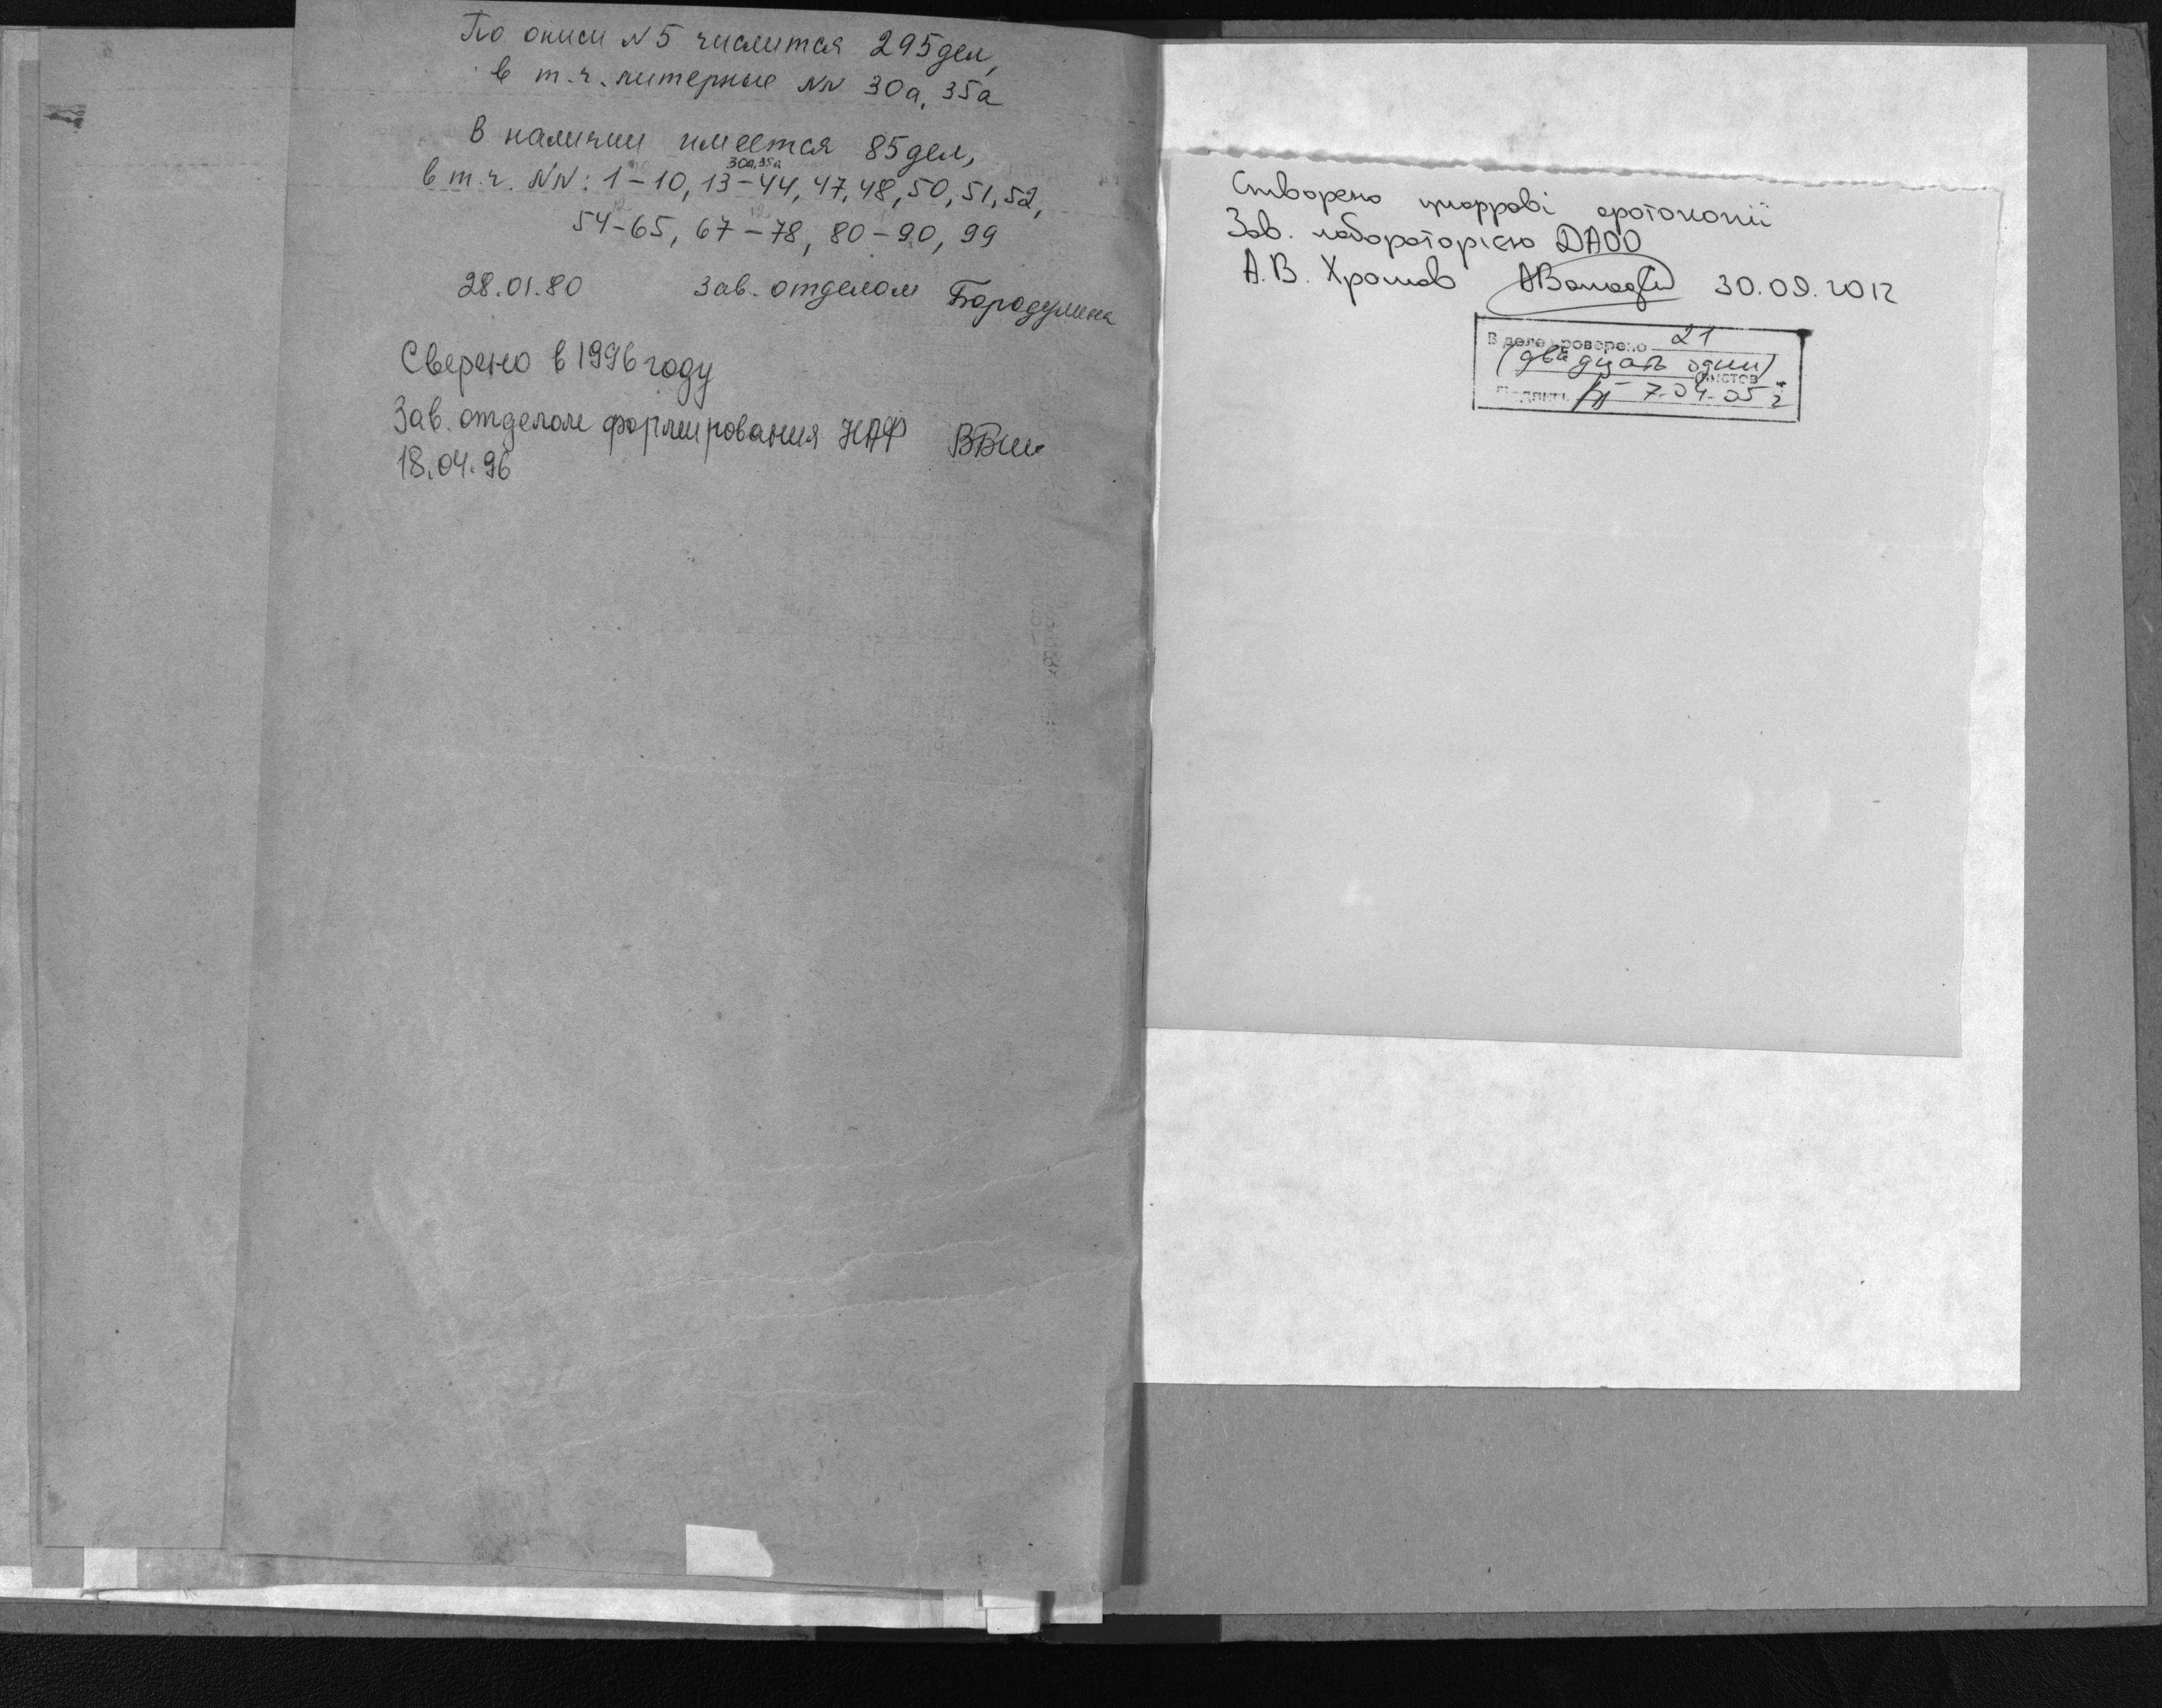 По описи N 5 числится 295 дел,
в т.ч. литерные NN 30а, 35а
В наличии имеется 85 дел,
30а, 35а
в т.ч. NN: 1-10, 13-44, 47, 48, 50, 51, 52,
54-65, 67-78, 80-90, 99
28.01.80 Зав. отделом Бородулина
Сверено в 1996 году
Зав. отделом формирования НАФ
18.04.96
Створено цифрові фотокопії
Зав. лабораторією ДАОО
А.В. Хромов 30.09.2012
В деле проверено 21
(двадцать один)
листов
Подпись 7.04.05 г